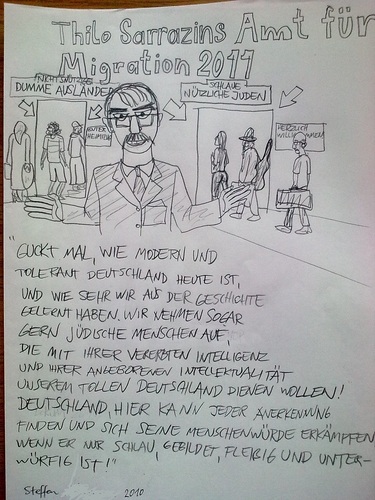 Thilo Sarrazins Amt für
Migration 2011
NICHTSNUTZIGE
DUMME AUSLÄNDER
SCHLAUE
NÜTZLICHE JUDEN
HERZLICH
WILLKOMMEN
"GUCKT MAL, WIE MODERN UND
TOLERANT DEUTSCHLAND HEUTE IST,
UND WIE SEHR WIR AUS DER GESCHICHTE
GELERNT HABEN. WIR NEHMEN SOGAR
GERN JÜDISCHE MENSCHEN AUF,
DIE MIT IHRER VERERBTEN INTELLIGENZ
UND IHRER ANGEBORENEN INTELLEKTUALITÄT
UNSEREM TOLLEN DEUTSCHLAND DIENEN WOLLEN!
DEUTSCHLAND, HIER KANN JEDER ANERKENNUNG
FINDEN UND SICH SEINE MENSCHENWÜRDE ERKÄMPFEN
WENN ER NUR SCHLAU, GEBILDET, FLEIßIG UND UNTER-
WÜRFIG IST!"
Steffen 2010